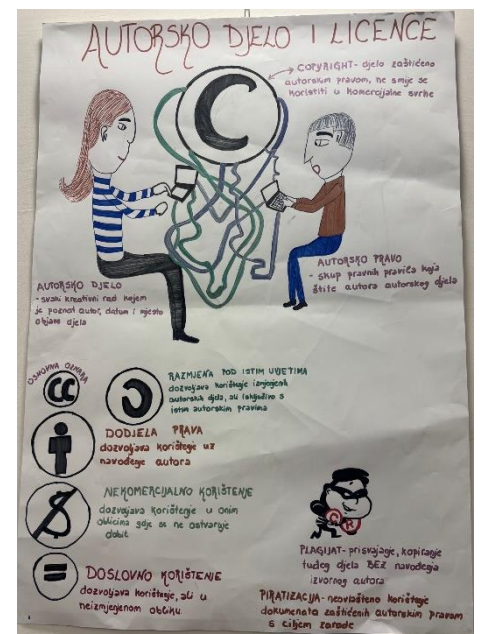 AUTORSKO DJELO I LICENCE
COPYRIGHT - djelo zaštićeno
autorskim pravom, ne smije se
koristiti u komercijalne svrhe
C
AUTORSKO PRAVO
- skup pravnih pravila koja
štite autora autorskog djela
AUTORSKO DJELO
- svaki kreativni rad kojem
je poznat autor, datum i mjesto
objave djela
OSNOVNA OZNAKA
CC
RAZMJENA POD ISTIM UVJETIMA
dozvoljava korištenje izmjenjenih
autorskih djela, ali isključivo s
istim autorskim pravima
DODJELA PRAVA
dozvoljava korištenje uz
navođenje autora
NEKOMERCIJALNO KORIŠTENJE
dozvoljava korištenje u onim
oblicima gdje se ne ostvaruje
dobit
DOSLOVNO KORIŠTENJE
dozvoljava korištenje, ali u
neizmjenjenom obliku
C R
PLAGIJAT - prisvajanje, kopiranje
tuđeg djela BEZ navođenja
izvornog autora
PIRATIZACIJA - neovlašteno korištenje
dokumenata zaštićenih autorskim pravom
s ciljem zarade